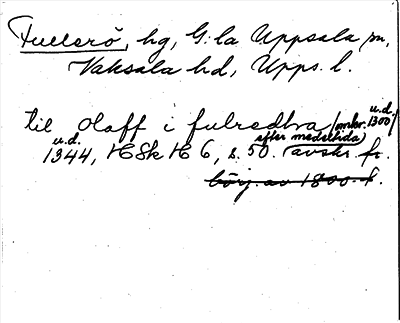 Fullerö, hg, G:la Uppsala sn,
Vaksala hd, Upps. l.
til olaff i fulredhra (omkr. 1300 u.d.)
u.d. 1344, HSH 6, s. 50. (avskr. fr. efter medeltida)
börj. av 1800-t.